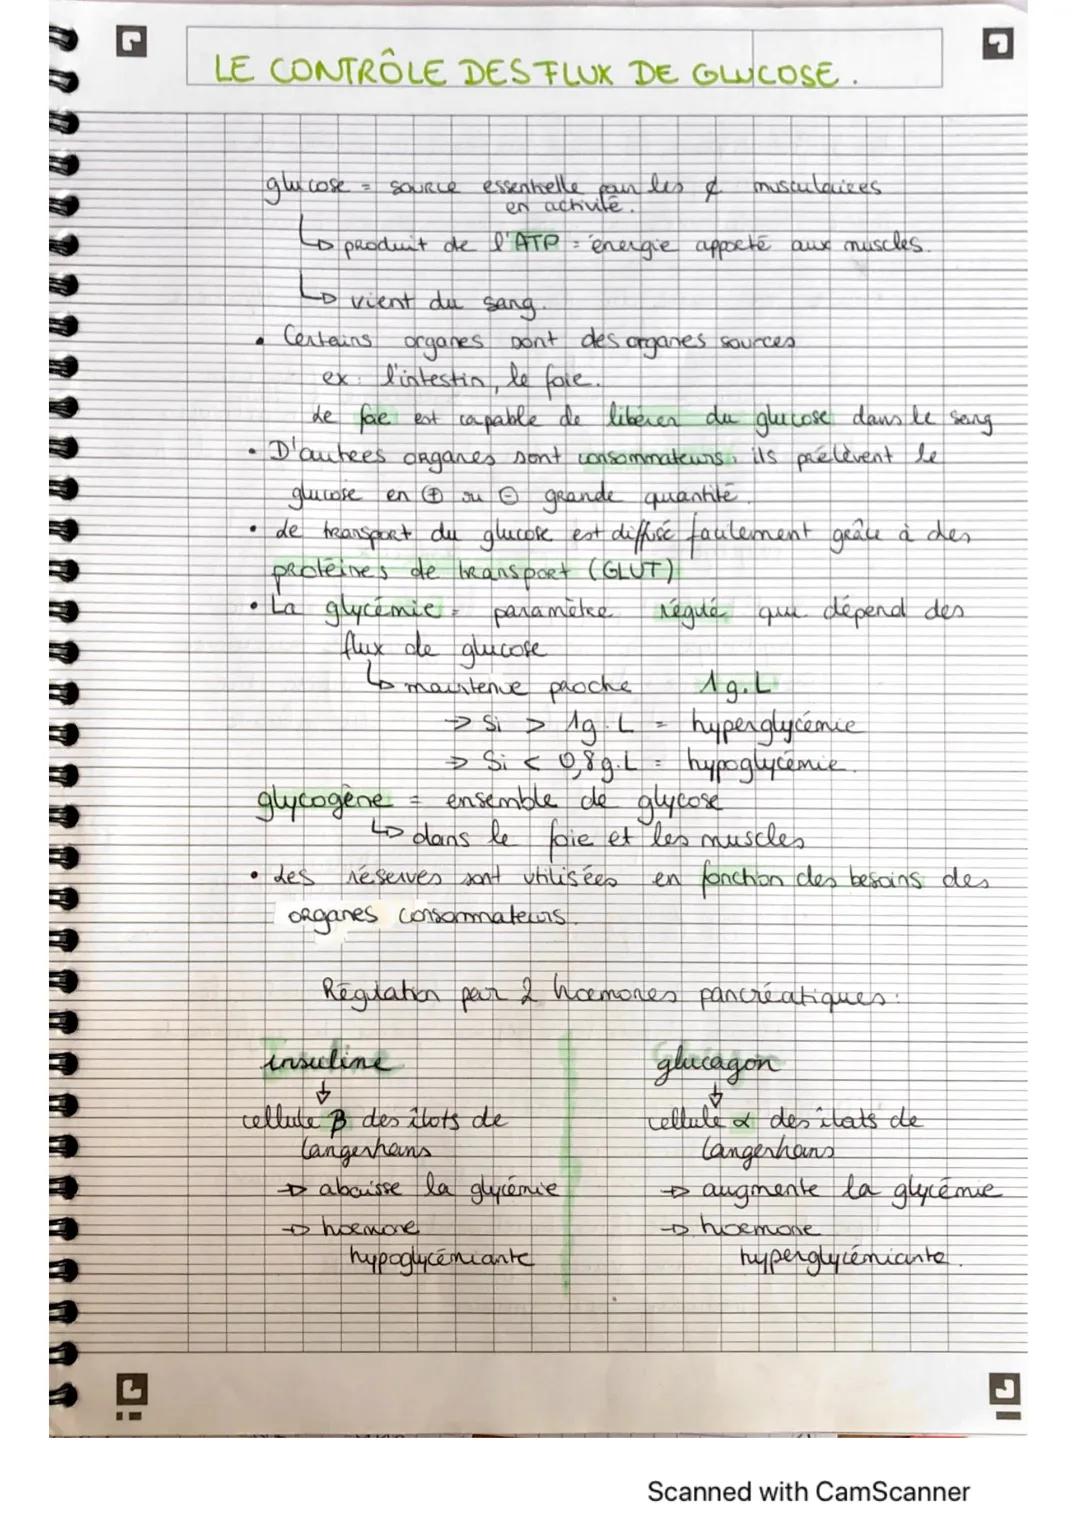 LE CONTRÔLE DES FLUX DE GLUCOSE.
glucose = source essentielle pour les ¢ musculaires
en activité.
↳ produit de l'ATP = énergie apporté aux muscles.
↳ vient du sang.
• Certains organes sont des organes sources
ex: l'intestin, le foie.
Le foie est capable de libérer du glucose dans le sang
• D'autres organes sont consommateurs, ils prélèvent le
glucose en ⊕ ou ⊖ grande quantité.
• Le transport du glucose est diffusé facilement grâce à des
protéines de transport (GLUT)
• La glycémie = paramètre régulé qui dépend des
flux de glucose
↳ maintenue proche 1g.L
→ Si > 1g.L = hyperglycémie
→ Si < 0,8g.L = hypoglycémie.
glycogène = ensemble de glycose
↳ dans le foie et les muscles
• Les réserves sont utilisées en fonction des besoins des
organes consommateurs.
Régulation par 2 hormones pancréatiques:
insuline glucagon
↓ ↓
cellule β des îlots de cellule α des îlots de
Langerhans Langerhans
→ abaisse la glycémie → augmente la glycémie
→ hormone → hormone
hypoglycémiante hyperglycémiante.
Scanned with CamScanner